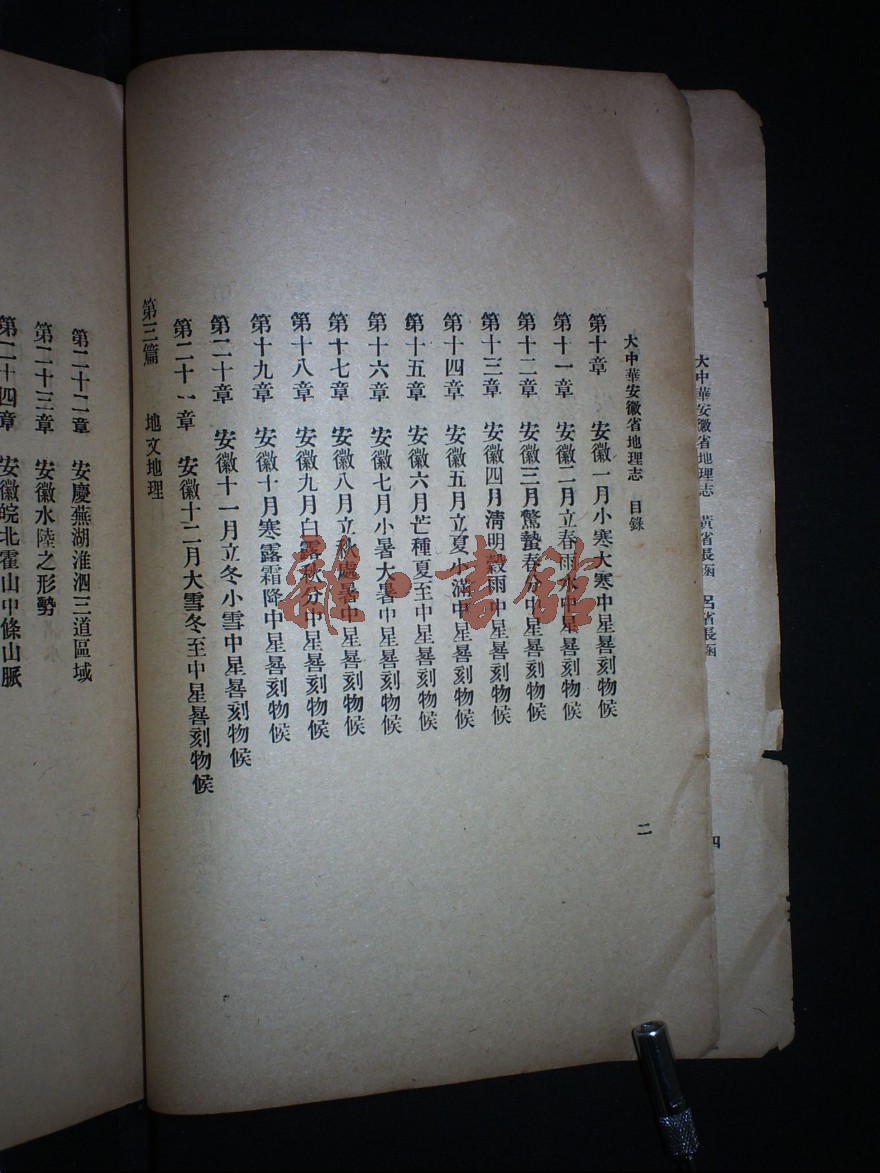 大中華安徽省地理志　黃省長函　呂省長函
四
大中華安徽省地理志　目錄
二
第十章　安徽一月小寒大寒中星晷刻物候
第十一章　安徽二月立春雨水中星晷刻物候
第十二章　安徽三月驚蟄春分中星晷刻物候
第十三章　安徽四月清明穀雨中星晷刻物候
第十四章　安徽五月立夏小滿中星晷刻物候
第十五章　安徽六月芒種夏至中星晷刻物候
第十六章　安徽七月小暑大暑中星晷刻物候
第十七章　安徽八月立秋處暑中星晷刻物候
第十八章　安徽九月白露秋分中星晷刻物候
第十九章　安徽十月寒露霜降中星晷刻物候
第二十章　安徽十一月立冬小雪中星晷刻物候
第二十一章　安徽十二月大雪冬至中星晷刻物候
第三篇　地文地理
第二十二章　安慶蕪湖淮泗三道區域
第二十三章　安徽水陸之形勢
第二十四章　安徽皖北霍山中條山脈
雜·書館